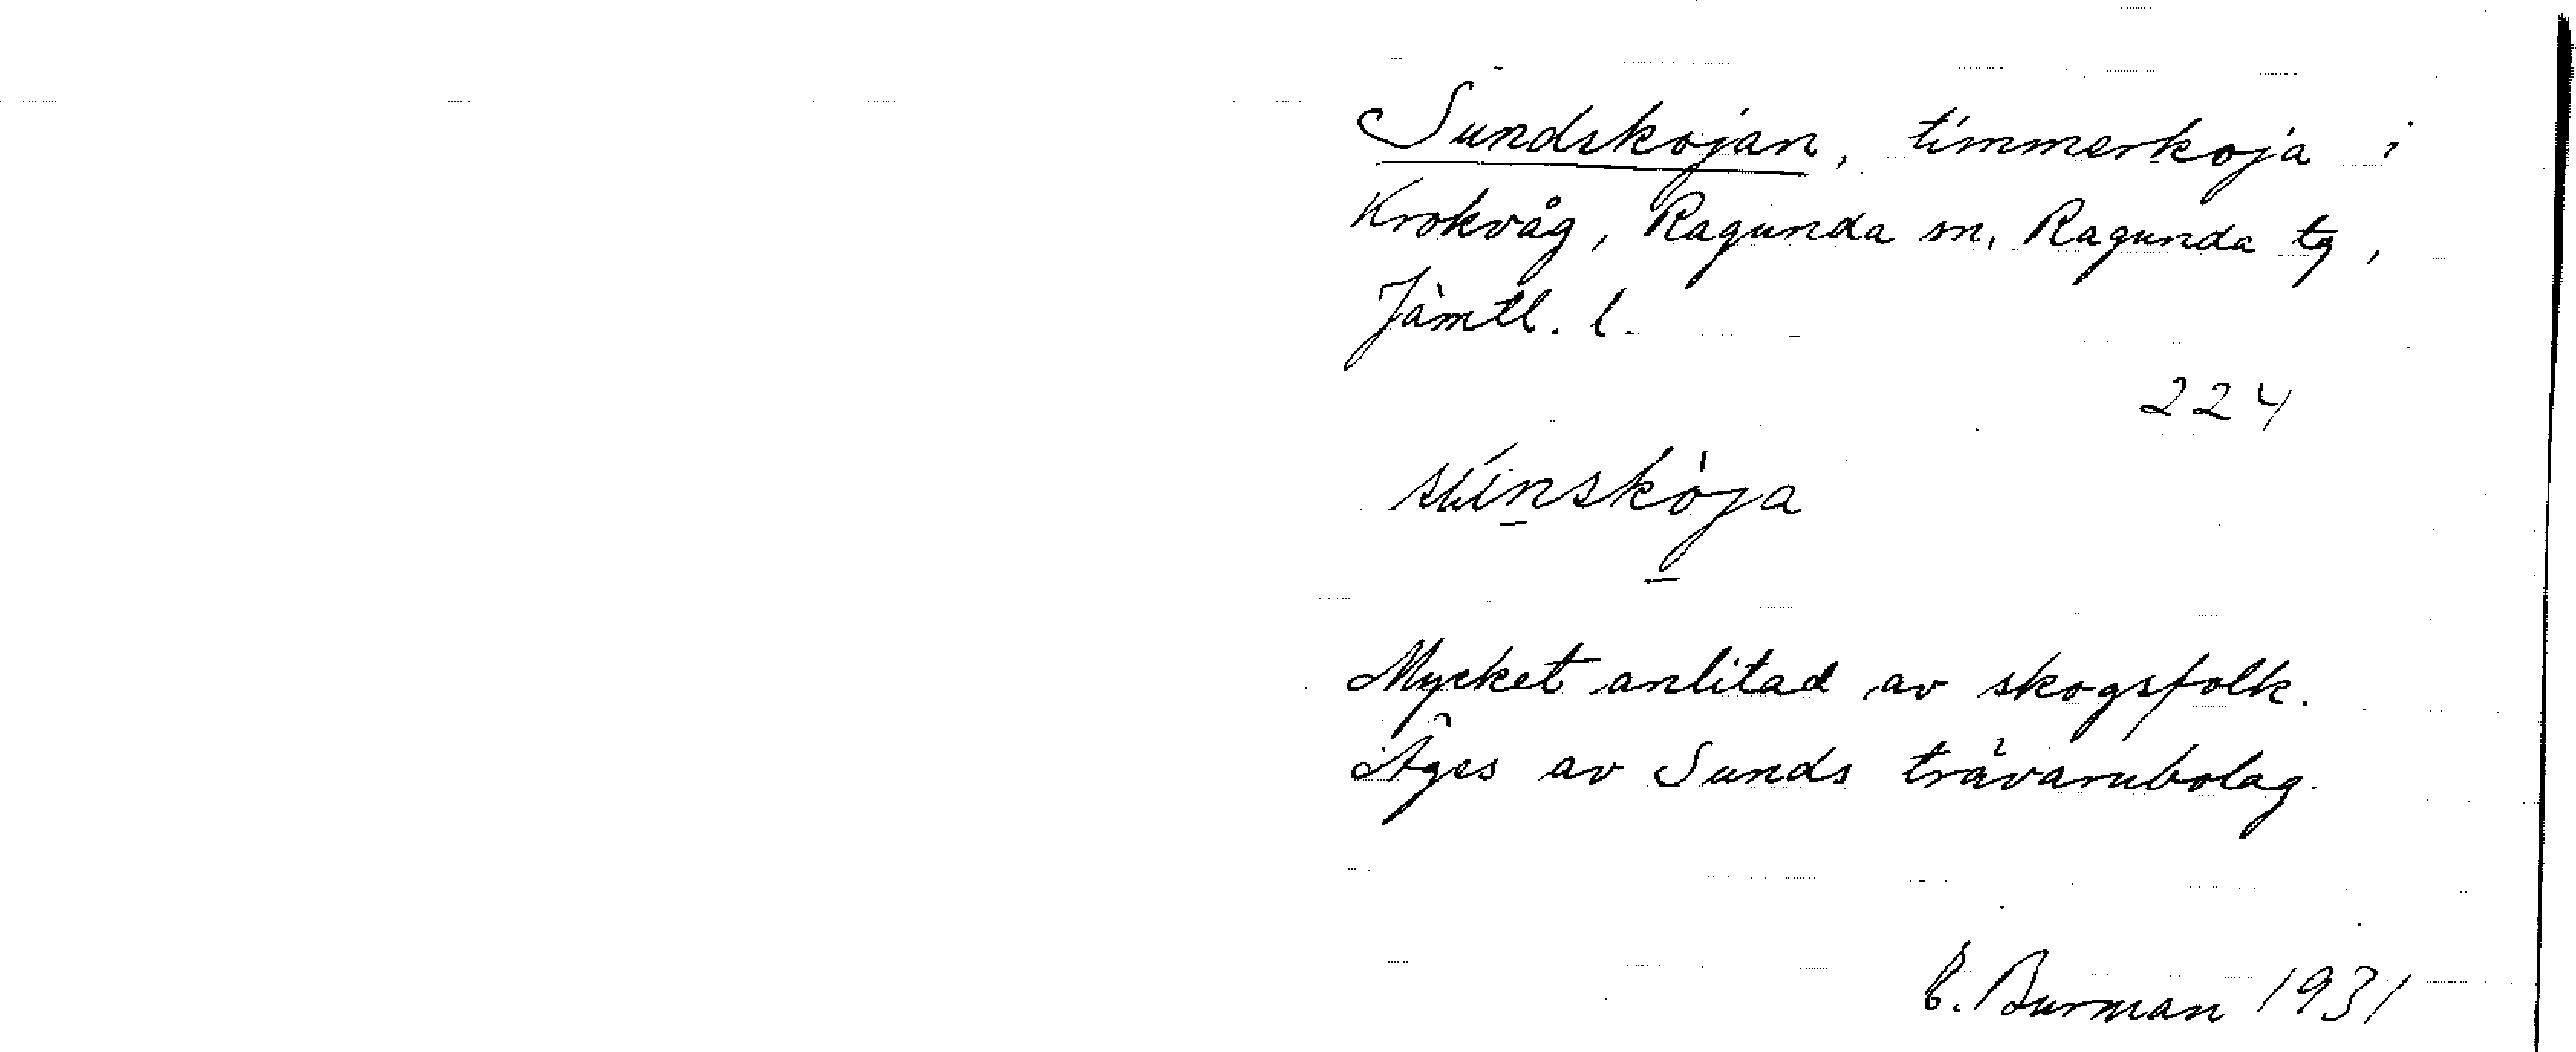 Sundskojan, timmerkoja i
Krokvåg, Ragunda sn, Ragunda tg,
Jämtl. l.
224
Mycket anlitad av skogsfolk.
Äges av Sunds trävarubolag.
E. Burman 1931